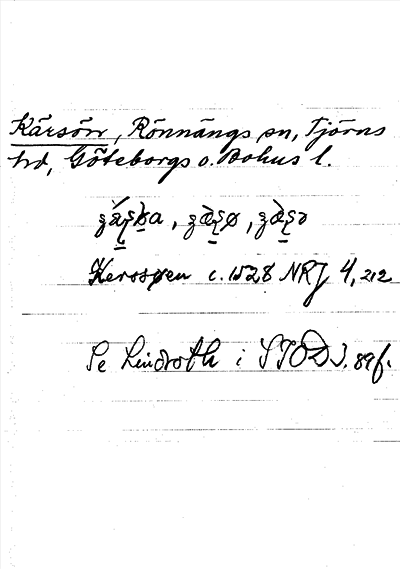 Kärsön, Rönnängs sn, Tjörns
hd, Göteborgs o. Bohus l.
Kerssøen c. 1528 NRJ 4, 212
Se Lindroth i SIOD 3, 89 f.